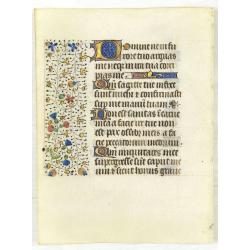 Domine ne in fu
rore tuo arguas
me neqz in ira tua corri
pias me
Qm sagitte tue infixe
sunt michi et confirmasti
super me manum tuam
Non est sanitas i carne
mea a facie ire tue non
est pax ossibz meis a fa
cie peccatorum meorum
Qm iniquitates mee
supergresse sunt caput me
um et sicut honus graue